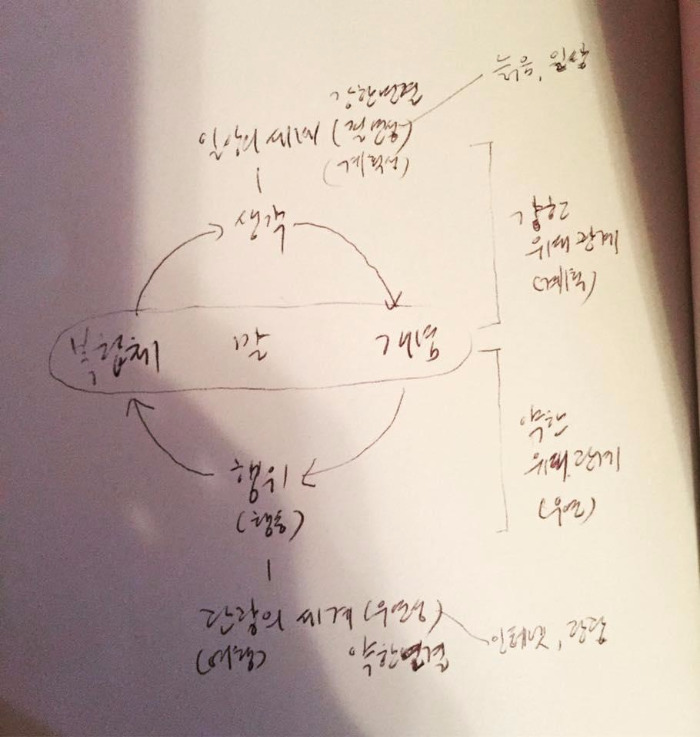 강한연결
늙음, 일상
일상의 세계 (필연성)
(계획성)
생각
강한
위태 관계
(계획)
복합체 말 개념
약한
위태 관계
(우연)
행위
(행동)
단량의 세계 (우연성)
(여행) 약한 연결
인터넷, 광장